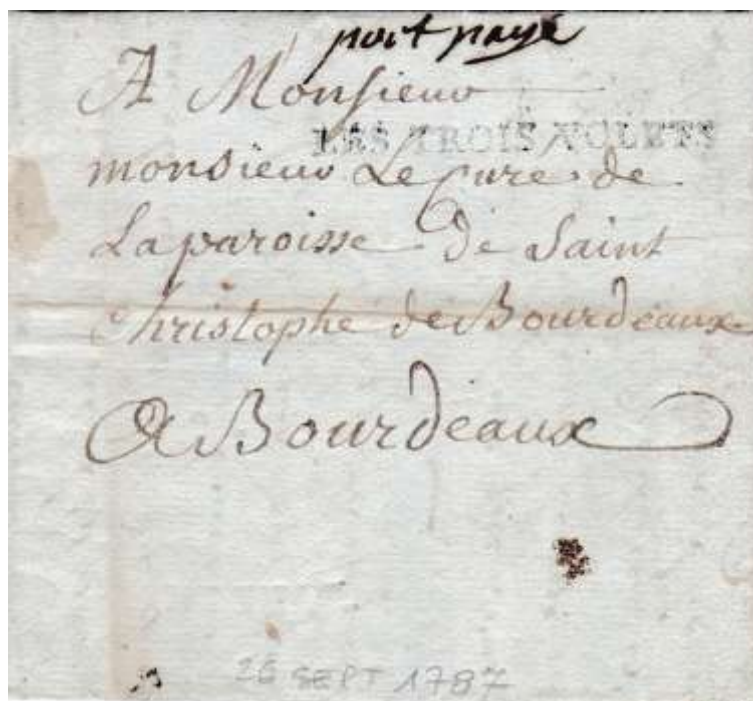 port payé
A Monsieur
LES TROIS VOLETS
monsieur Le Cure de
La paroisse de Saint
Christophe de Bourdeaux
A Bourdeaux
26 SEPT 1787